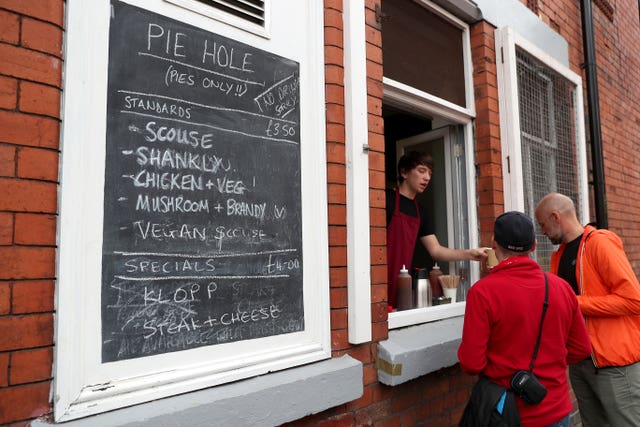 PIE HOLE
(PIES ONLY!!)
NO DRINKS
STANDARDS £3.50
- SCOUSE
- SHANKLY
- CHICKEN + VEG
- MUSHROOM + BRANDY V
VEGAN SCOUSE
SPECIALS £4.00
KLOPP
STEAK + CHEESE